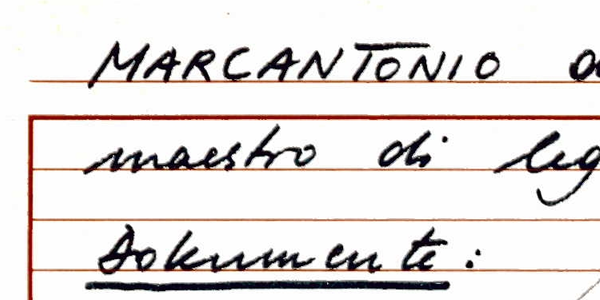 MARCANTONIO
maestro di leg
Dokumente: